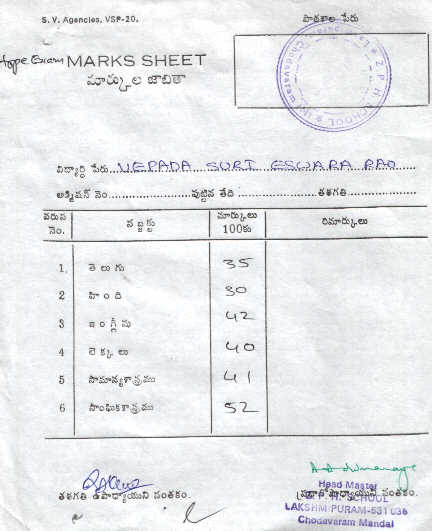 S. V. Agencies, VSP-20.
పాఠశాల పేరు
MARKS SHEET
మార్కుల జాబితా
Z. P. H. SCHOOL
Chodavaram
విద్యార్థి పేరు VEPADA SURI ESWARA RAO
అడ్మిషన్ నెం. పుట్టిన తేది తరగతి
వరుస నెం. సబ్జక్టు మార్కులు 100కు రిమార్కులు
1. తెలుగు 35
2 హింది 30
3 ఇంగ్లీషు 42
4 లెక్కలు 40
5 సామాన్యశాస్త్రము 41
6 సాంఘికశాస్త్రము 52
తరగతి ఉపాధ్యాయుని సంతకం. ప్రధానోపాధ్యాయుని సంతకం.
Head Master
Z. P. H. SCHOOL
LAKSHMIPURAM-531 036
Chodavaram Mandal